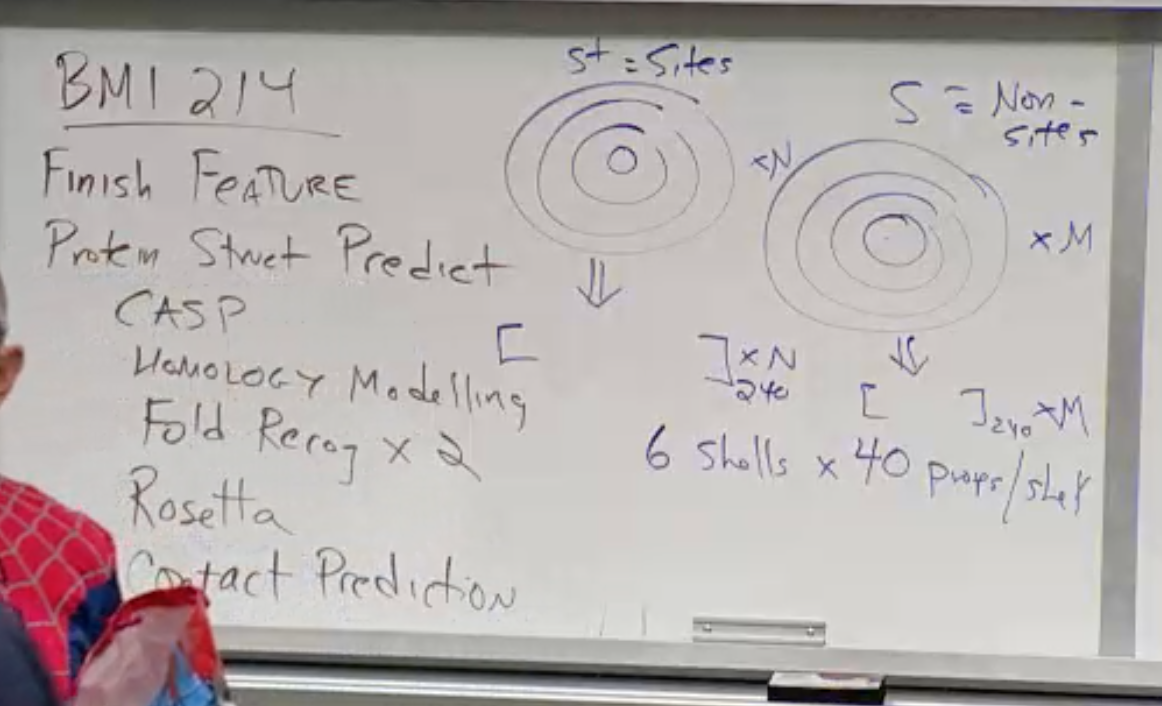 BMI 214
Finish FEATURE
Protein Struct Predict
CASP
Homology Modelling
Fold Recog x 2
Rosetta
Contact Prediction
S+ = Sites
xN
S = Non-
sites
x M
[ ]240 x N
[ ]240 x M
6 Shells x 40 props/shell